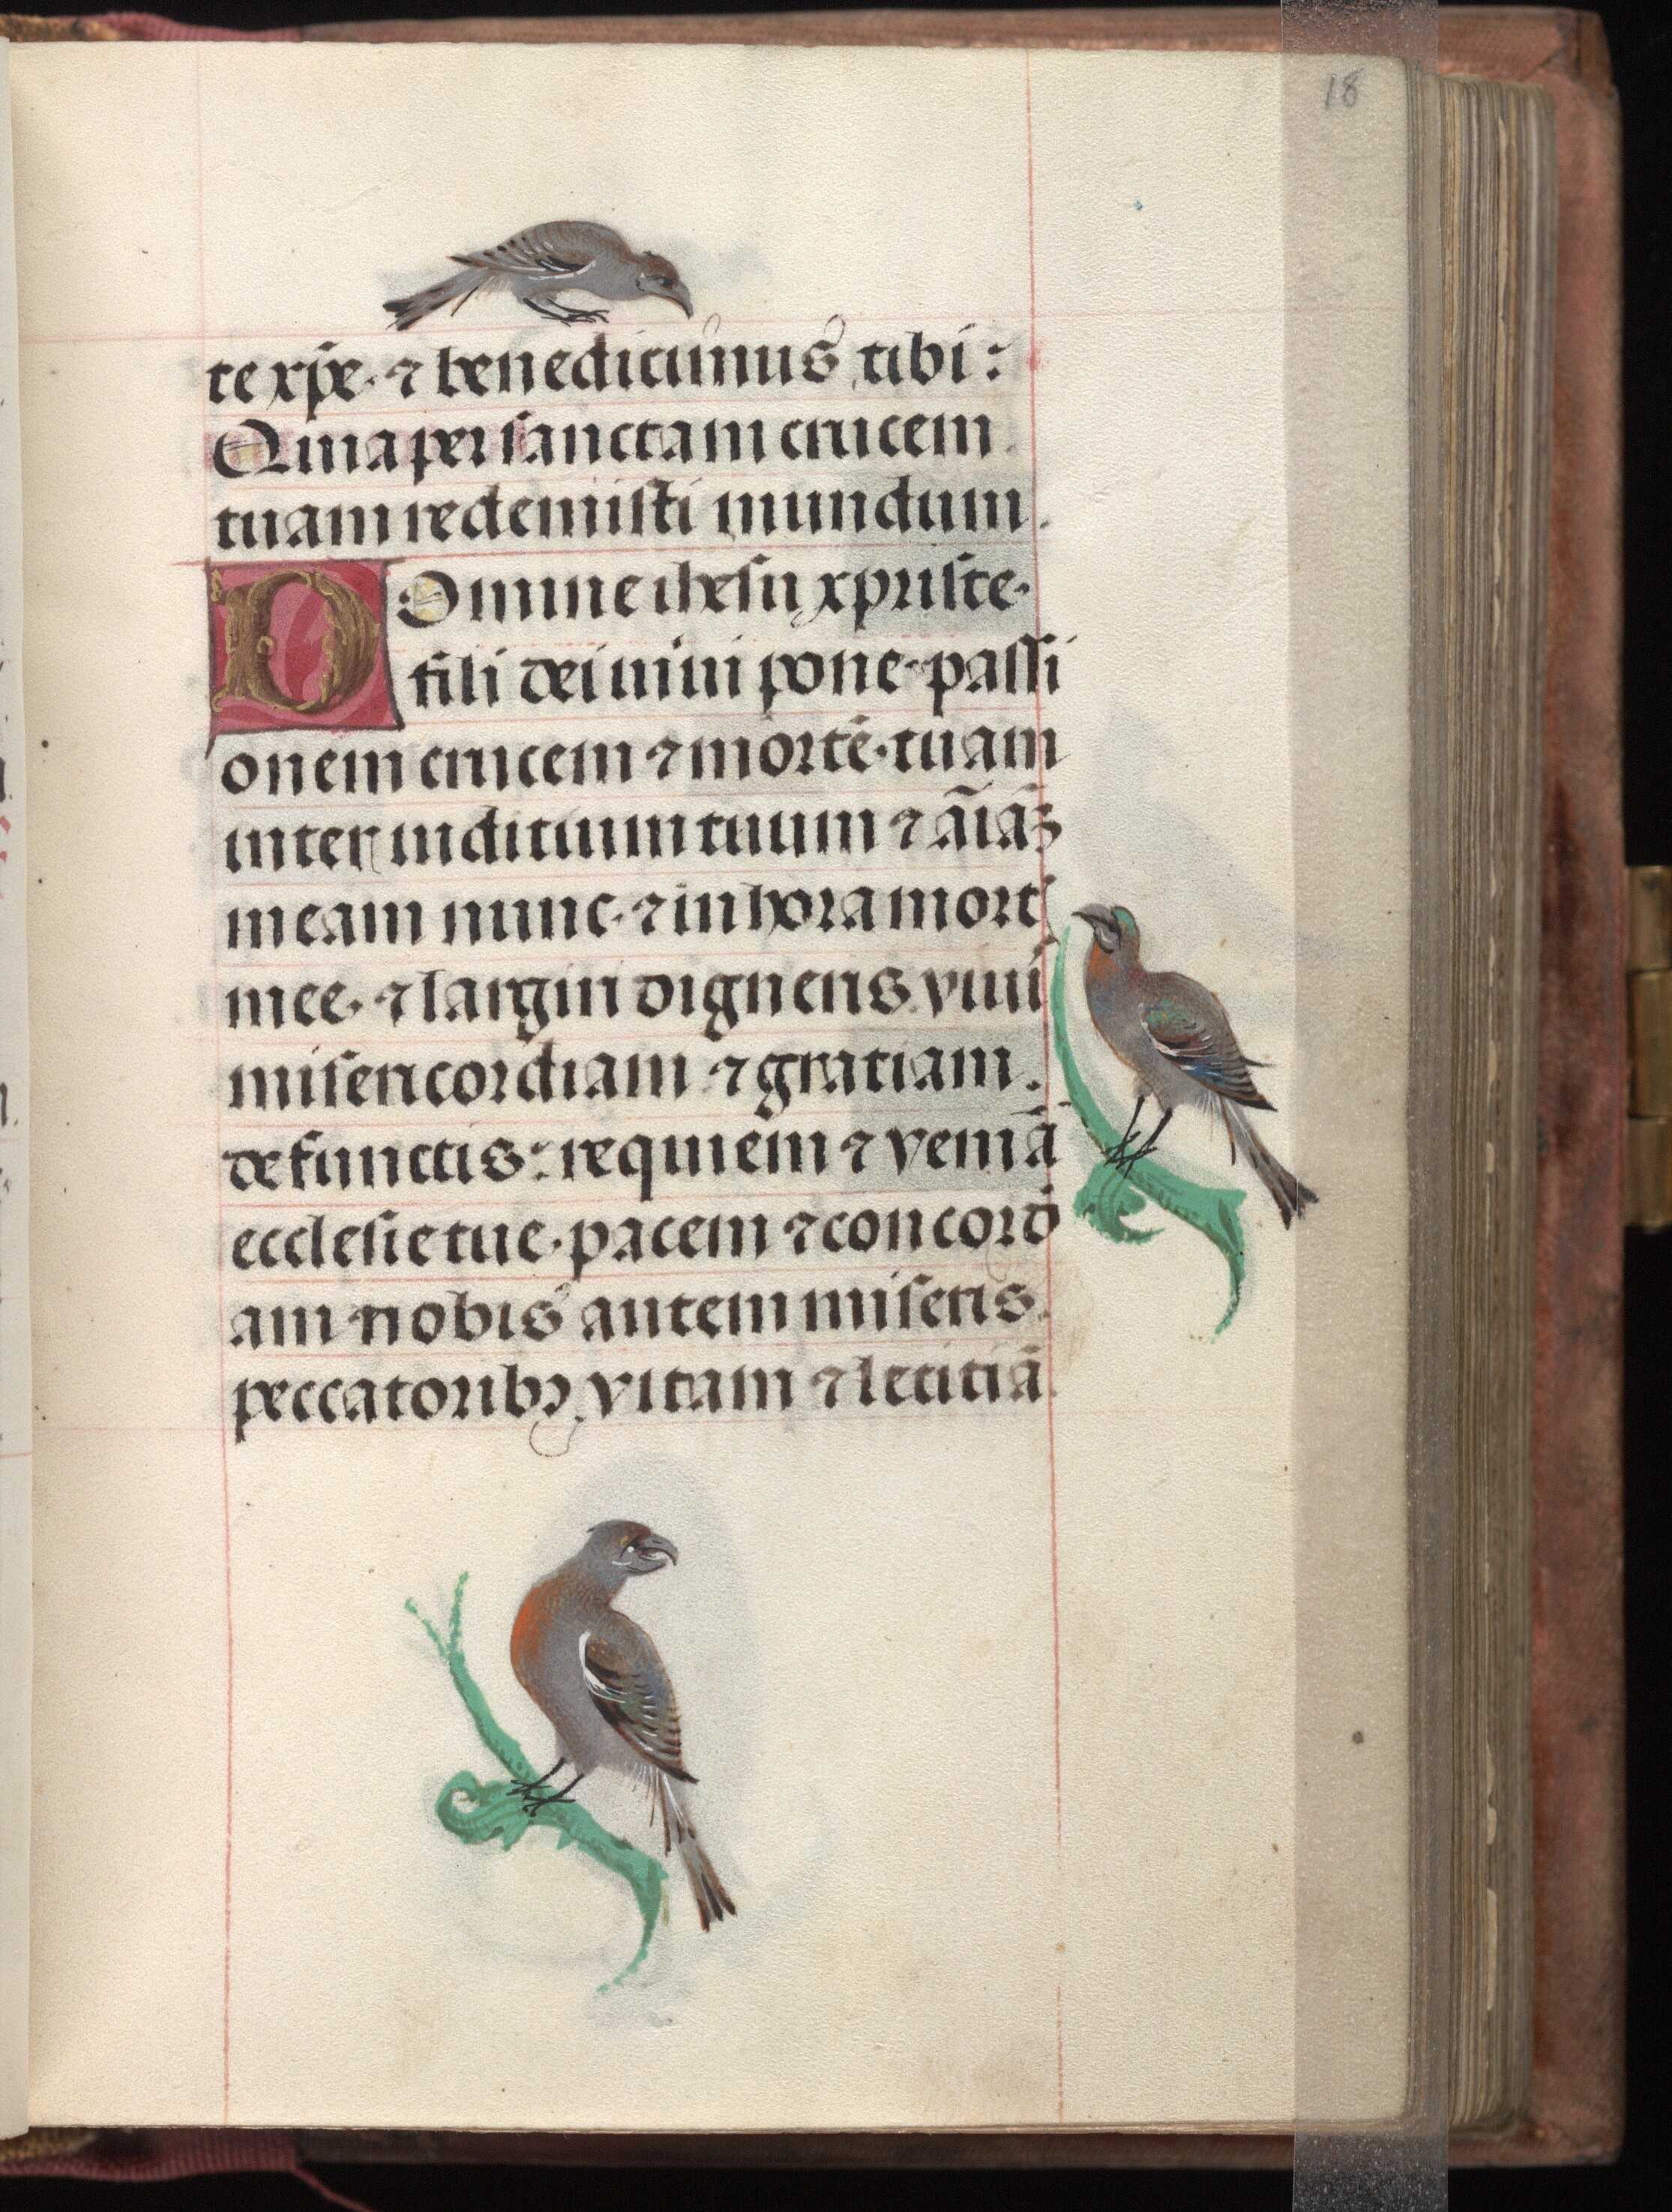 18
te xpe· ⁊ benedicimus tibi:
Quia per sanctam crucem
tuam redemisti mundum.
Domine ihesu xpriste·
fili dei uiui pone·passi
onem crucem ⁊ mortē·tuam
inter iudicium tuum ⁊ āiāʒ
meam nunc·⁊ in hora mort
mee·⁊ largiri digneris viui
misericordiam ⁊ gratiam.
defunctis: requiem ⁊ veniā
ecclesie tue·pacem ⁊ concord
am nobis autem miseris.
peccatoribꝫ vitam ⁊ leticiā